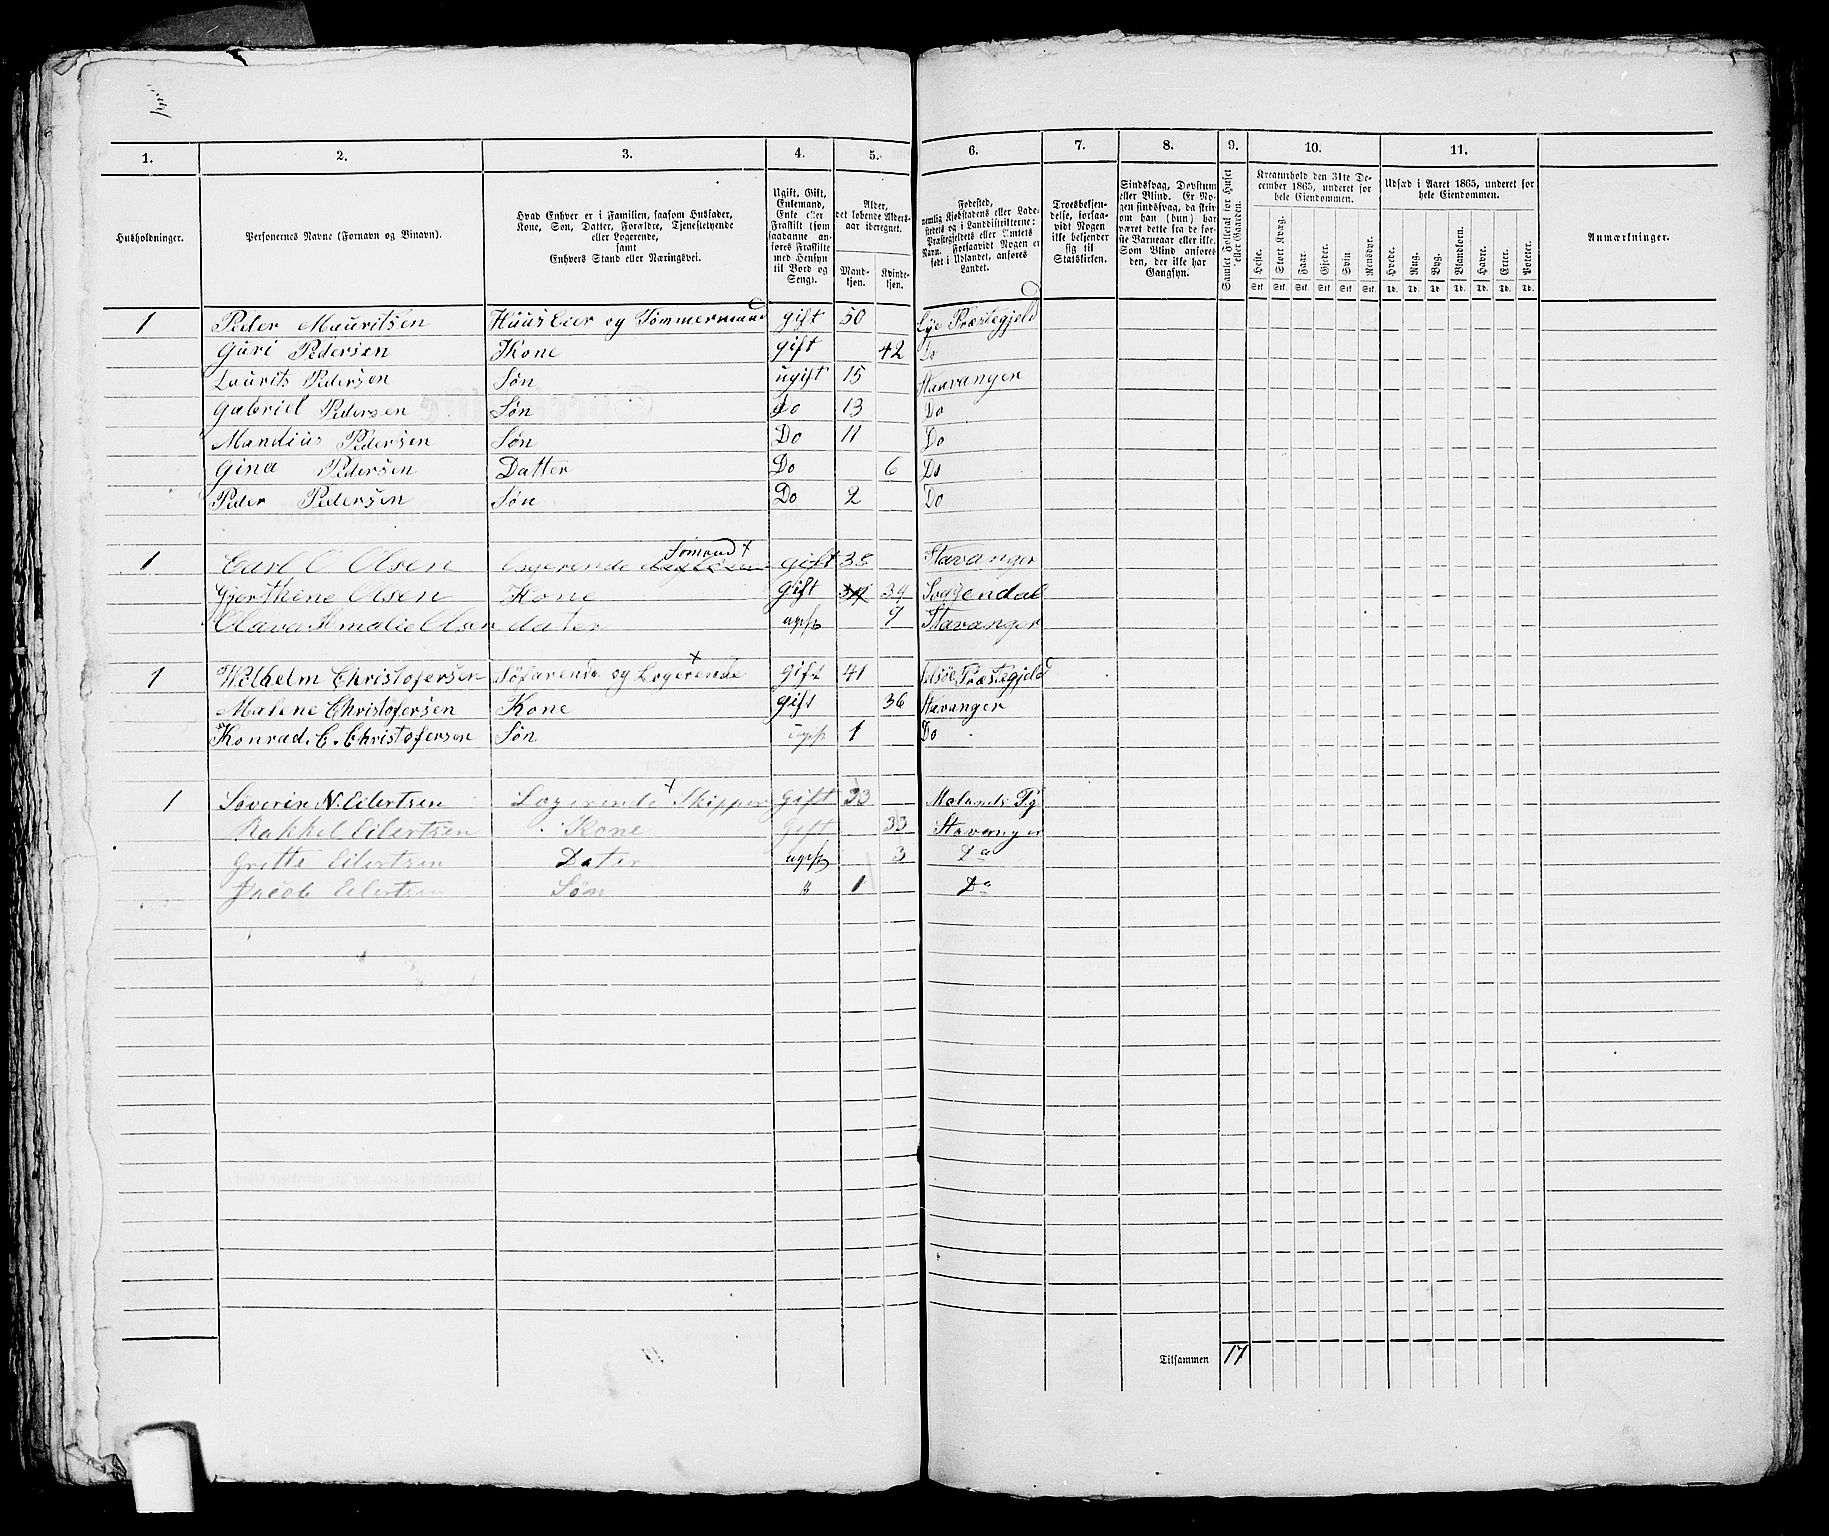 1. 2. 3. 4. 5. 6. 7. 8. 9. 10. 11.
Husholdninger.
Personernes Navne (Fornavn og Binavn).
Hvad Enhver er i Familien, saasom Husfader,
Kone, Søn, Datter, Forældre, Tjenestetyende
eller Logerende,
samt
Enhvers Stand eller Næringsvei.
Ugift, Gift,
Enkemand,
Enke eller
Fraskilt (som
saadanne an-
føres Fraskilte
med Hensyn
til Bord og
Seng).
Alder,
det løbende Alders-
aar iberegnet.
Mand-
kjøn.
Kvinde-
kjøn.
Fødested,
nemlig Kjøbstadens eller Lade-
stedets og i Landdistrikterne:
Præstegjeldets eller Amtets
Navn. Forsaavidt Nogen er
født i Udlandet, anføres
Landet.
Troesbekjen-
delse, forsaa-
vidt Nogen
ikke bekjender
sig til
Statskirken.
Sindssvag, Døvstum
eller Blind. Er No-
gen sindssvag, da skriv
om han (hun) har
været dette fra de før-
ste Barneaar eller ikke.
Som Blind anføres
den, der ikke har
Gangsyn.
Samlet Folketal for Huset
eller Gaarden.
Kreaturhold den 31te De-
cember 1865, underet for
hele Eiendommen.
Heste. Stort Kvæg. Faar. Gjeder. Svin Rensdyr.
Stk. Stk. Stk. Stk. Stk. Stk.
Udsæd i Aaret 1865, underet for
hele Eiendommen.
Hvede. Rug. Byg. Blandkorn. Havre. Erter. Poteter.
Td. Td. Td. Td. Td. Td. Td.
Anmærkninger.
1 Peder Mauritsen Huuseier og Tømmermand gift 50 Lye Præstegjeld
Guri Pedersen Kone gift 42 Do
Laurits Pedersen Søn ugift 15 Stavanger
Gabriel Pedersen Søn Do 13 Do
Mandius Pedersen Søn Do 11 Do
Gina Pedersen Datter Do 6 Do
Peder Pedersen Søn Do 2 Do
Sømand x
1 Carl O Olsen Logerende gift 38 Stavanger
Gjerthine Olsen Kone gift 39 Soggendal
Olava Amalie Olsen dater ugift 7 Stavanger
1 Wilhelm Christofersen Søfarende og Logerende x gift 41 Jelsøe Præstegjeld
Malene Christofersen Kone gift 36 Stavanger
Konrad. C. Christofersen Søn ugift 1 Do
1 Søverin N. Eilertsen Logerende x Skipper Gift 33 Molands Pg
Rakkel Eilertsen Kone Gift 33 Stavanger
Grette Eilertsen Dater ugift 3 Do
Jacob Eilertsen Søn " 1 Do
Tilsammen 17